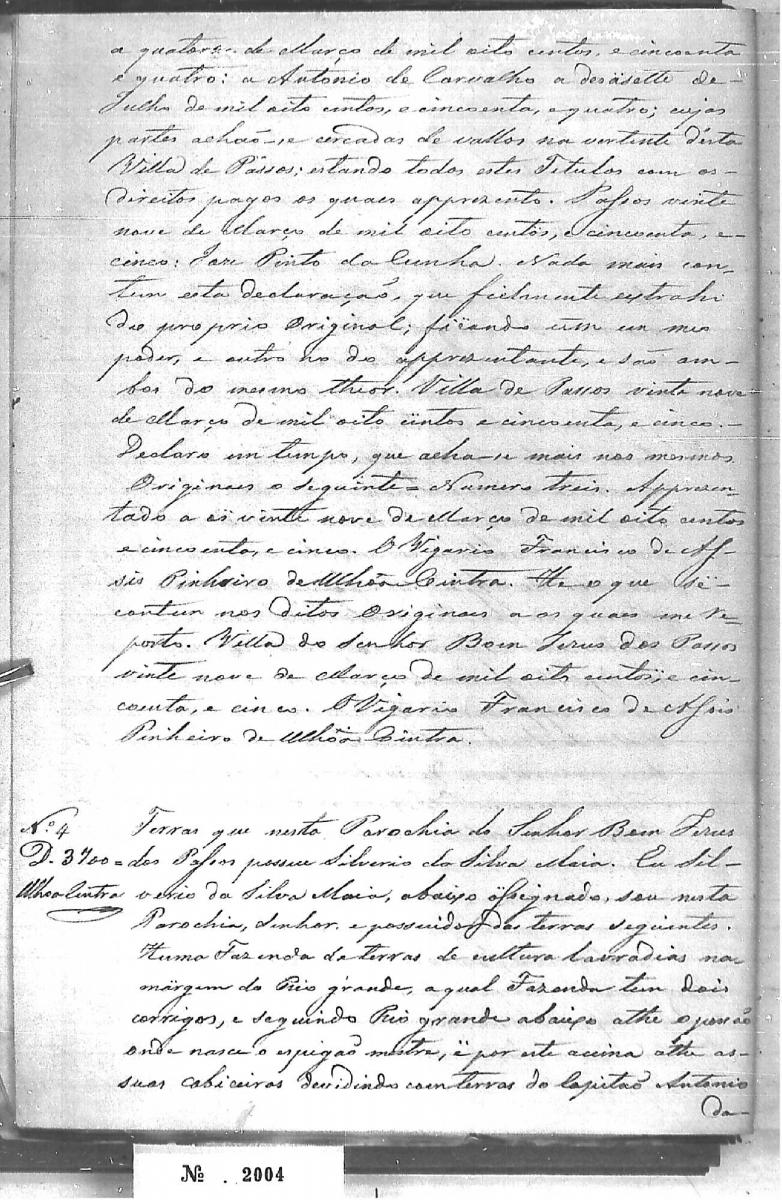 a quatorze de Março de mil oito centos, e cincoenta
e quatro: a Antonio de Carvalho a desasette de-
Julho de mil oito centos, e cincoenta, e quatro; cujas
partes achão-se cercadas de vallos na vertente desta
Villa de Passos; estando todos estes Titulos com os-
direitos pagos os quaes apprezento. Passos vinte
nove de Março de mil oito centos, e cincoenta, e-
cinco: Joze Pinto da Cunha. Nada mais con-
tem esta declaração, que fielmente extrahi
do proprio Original; ficando um em meo
poder, e outro no do apprezentante, e são am-
bos do mesmo theor. Villa de Passos vinte nove
de Março de mil oito centos e cincoenta, e cinco.-
Declaro em tempo, que acha-se mais nos mesmos
Originaes o seguinte = Numero tres. Apprezen-
tado a os vinte nove de Março de mil oito centos
e cincoenta, e cinco. O Vigario Francisco de As-
sis Pinheiro de Ulhôa Cintra. He o que se-
contem nos ditos Originaes a os quaes me re-
porto. Villa do Senhor Bom Jezus dos Passos
vinte nove de Março de mil oito centos, e cin-
coenta, e cinco. O Vigario Francisco de Assis
Pinheiro de Ulhôa Cintra.
Nº 4 Terras que nesta Parochia do Senhor Bom Jezus
D. 3700= dos Passos possue Silverio da Silva Maia. Eu Sil-
Ulhoa Cintra verio da Silva Maia, abaixo assignado, sou nesta
Parochia, Senhor e possuidor das terras seguintes.
Huma Fazenda de terras de cultura lavradias na-
márgem do Rio grande, a qual Fazenda tem dois
corrigos, e seguindo Rio grande abaixo athe o
onde nasce o espigão mestre, e por este acima athe as-
suas cabiceiras devidindo com terras do Capitão Antonio
da-
№ . 2004